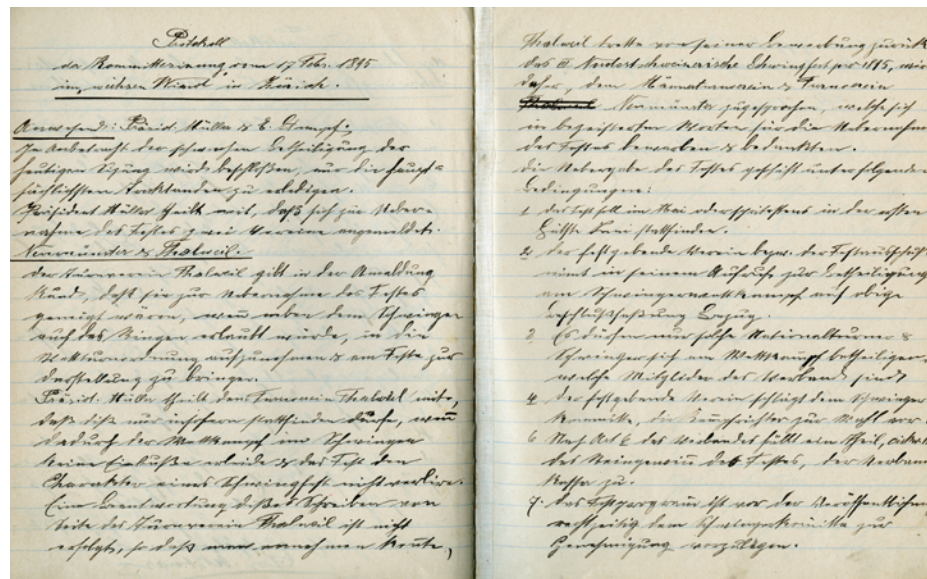 Protokoll
der Kommitteesizung vom 17 Febr. 1895
im "weissen Wind" in Zürich.
Anwesend: Präsid. Müller & E. Stumpf;
In Anbetracht der schwachen Betheiligung der
heutigen Sizung wird beschloßen, nur die haupt-
sächlichsten Traktanden zu erledigen.
Präsident Müller theilt mit, daß sich zur Ueber-
nahme des Festes zwei Vereine angemeldet:
Neumünster & Thalweil.
Der Turnverein Thalweil gibt in der Anmeldung
Kund, daß sie zur Uebernahme des Festes
geneigt wären, wenn neben dem Schwingen
auch das Ringen erlaubt würde, in die
Wettturnordnung aufzunehmen & am Feste zur
Darstellung zu bringen.
Präsid. Müller theilt dem Turnverein Thalweil mit,
daß dieß nur insofern stattfinden dürfe, wenn
dadurch der Wettkampf im Schwingen
keine Einbuße erleide & das Fest den
Charakter eines Schwingfest nicht verliere.
Eine Beantwortung dieses Schreiben von
Seite des Turnverein Thalweil ist nicht
erfolgt, so daß man annehmen konnte,
Thalweil trette von seiner Bewerbung zurück
Das III Nordostschweizerische Schwingfest pro 1895, wird
daher, dem Männerturnverein & Turnverein
Neumünster zugesprochen, welche sich
in begeisterten Worten für die Uebernahme
des Festes bewarben & bedankten.
Die Uebergabe des Festes geschieht unter folgenden
Bedingungen:
1 Das Fest soll im Mai oder spätestens in der ersten
Hälfte Juni stattfinden.
2 Der festgebende Verein bezw. der Festausschuß
nimt in seinem Aufrufe zur Betheiligung
am Schwingerwettkampf auf obige
Beschlußfaßung Bezug.
3 Es dürfen nur solche Nationalturner &
Schwinger sich am Wettkampf betheiligen,
welche Mitglider des Verband sind
4 Der festgebende Verein schlägt dem Schwinger
Komitte, die Kampfrichter zur Wahl vor.
6 Nach Art 6 des Verbandes fällt ein Theil,
des Reingewinn des Festes, der Verband
Kasse zu.
7. Das Festprogramm ist vor der Veröffentlichung
rechtzeitig dem Schwingerkomitte zur
Genehmigung vorzulegen.